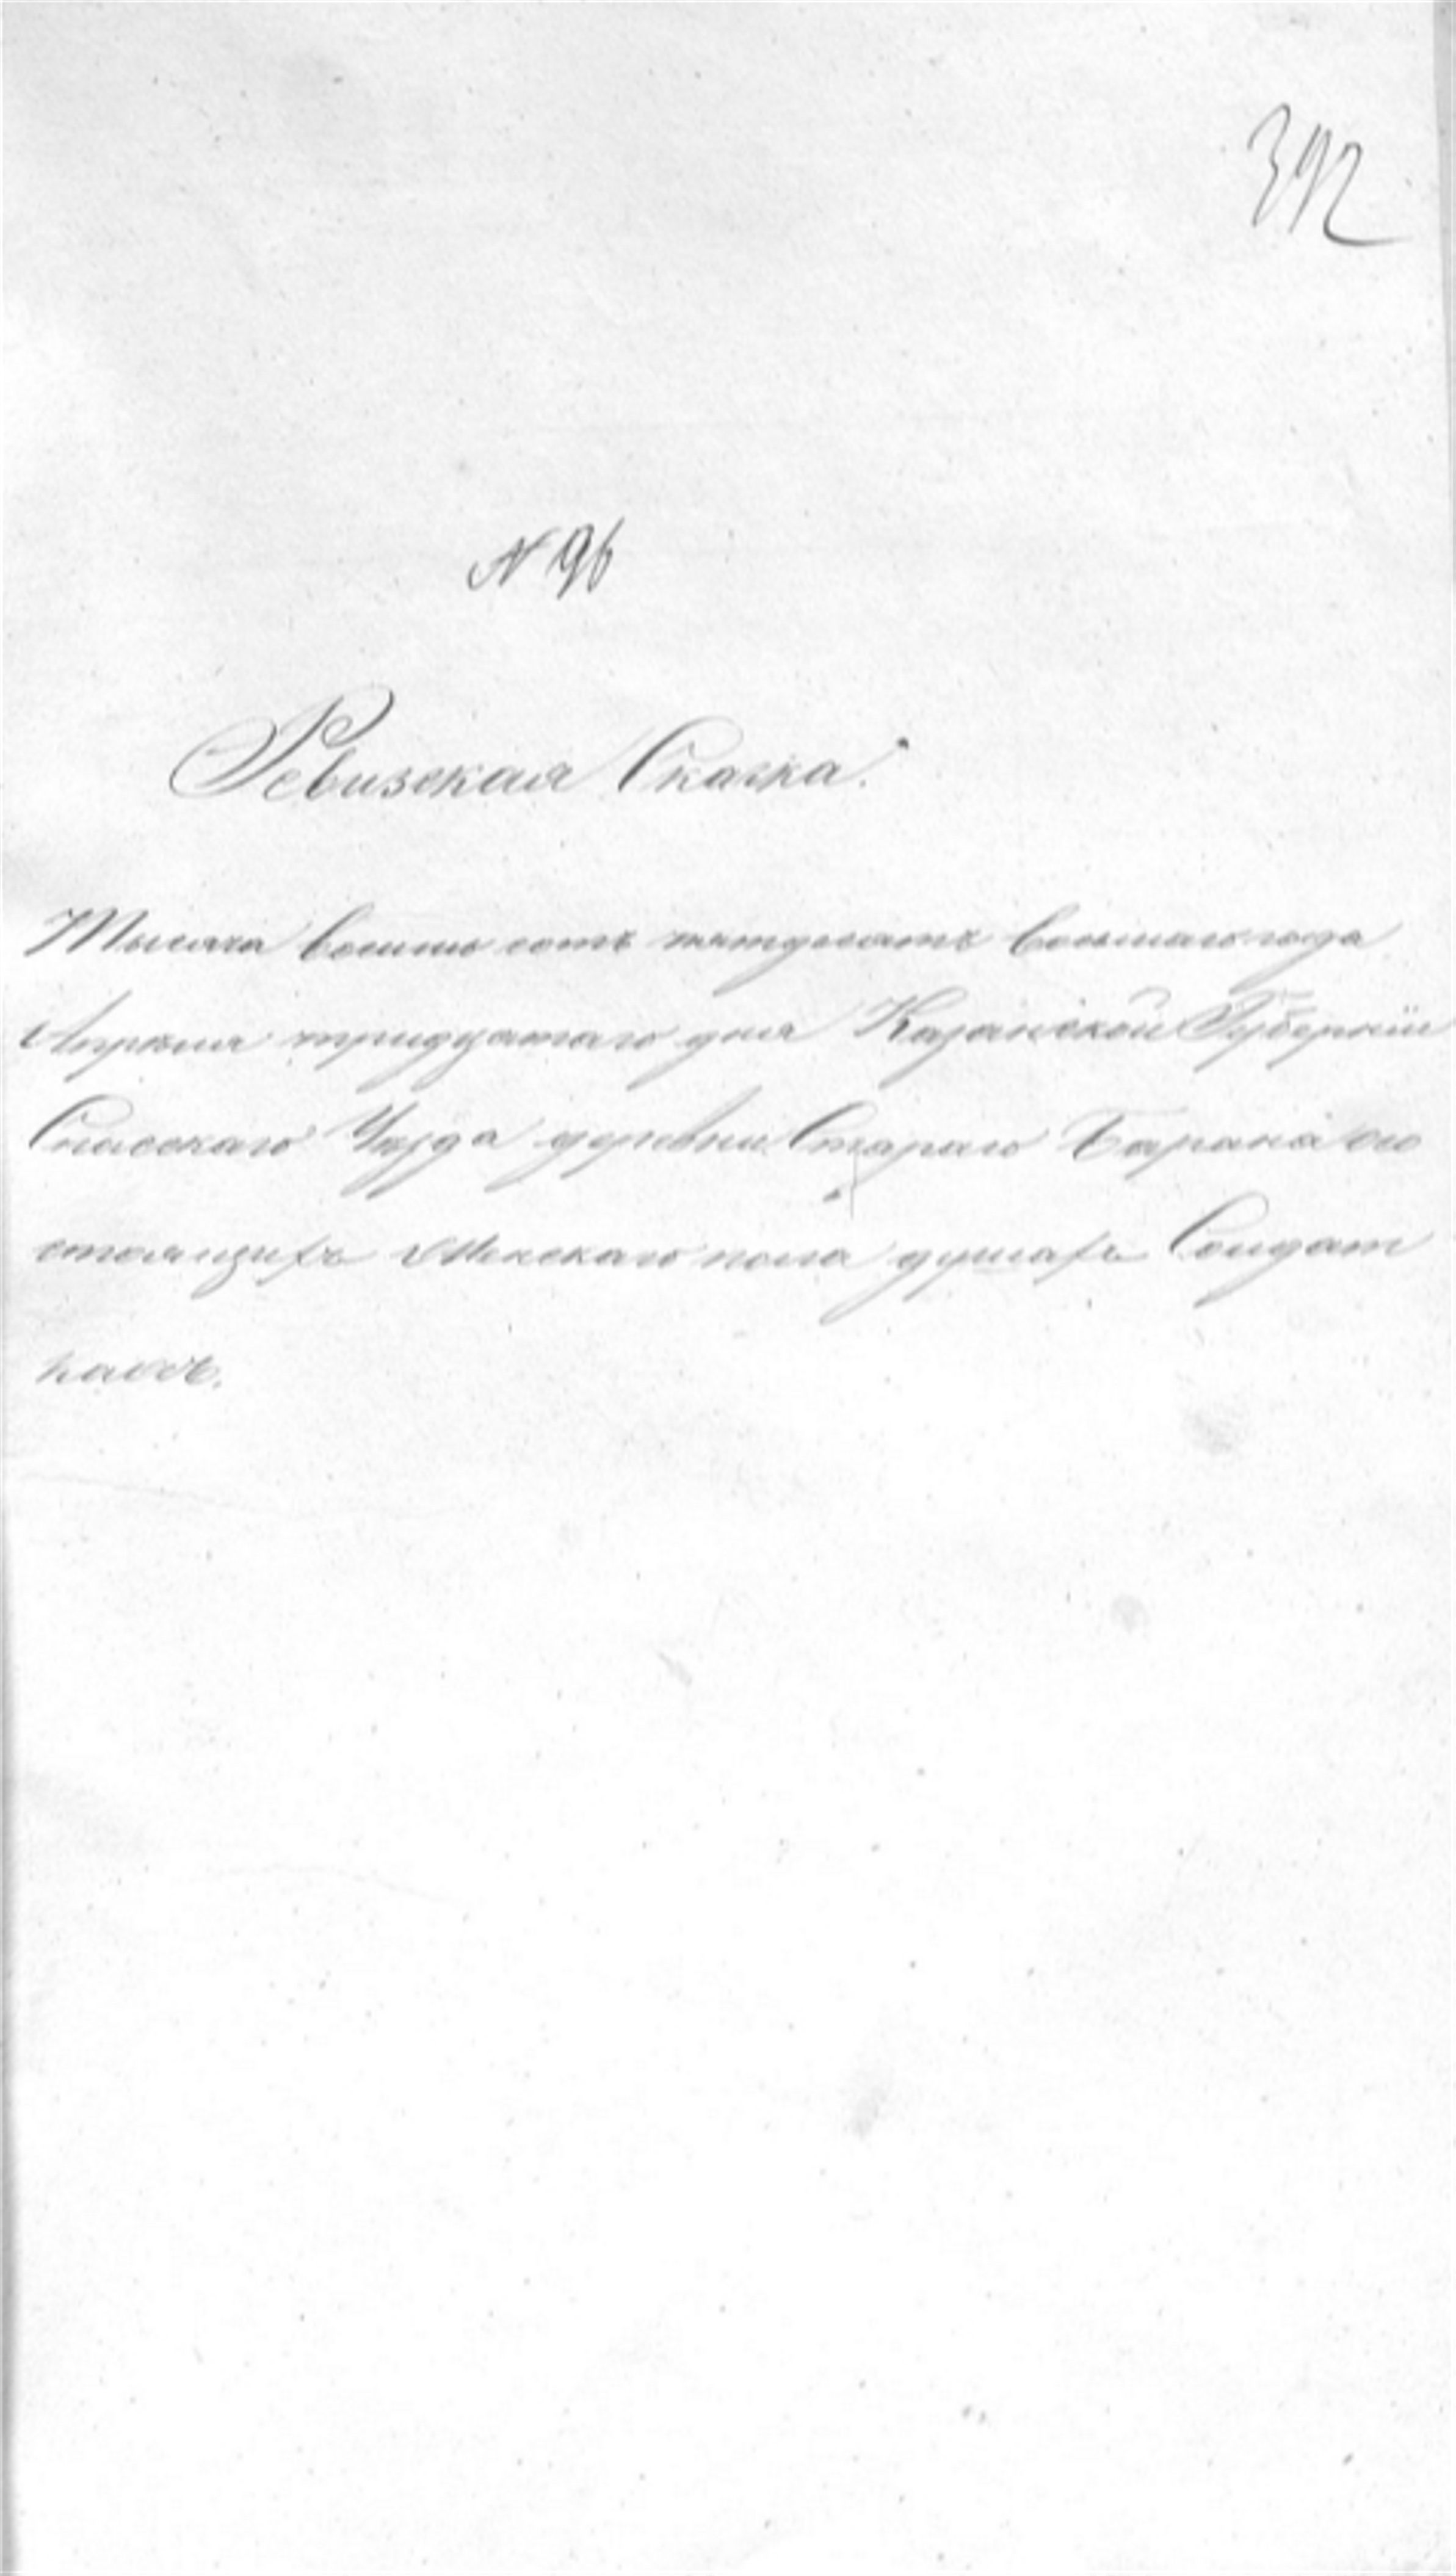 392
N 96
Ревизская Сказка.
Тысяча восемь сотъ пятдесятъ восьмаго года
Апреля тридцатаго дня Казанской Губернiи
Спасскаго Уѣзда деревни Стараго Баранa о со
стоящихъ Женскаго пола душахъ Солдат
кахъ.